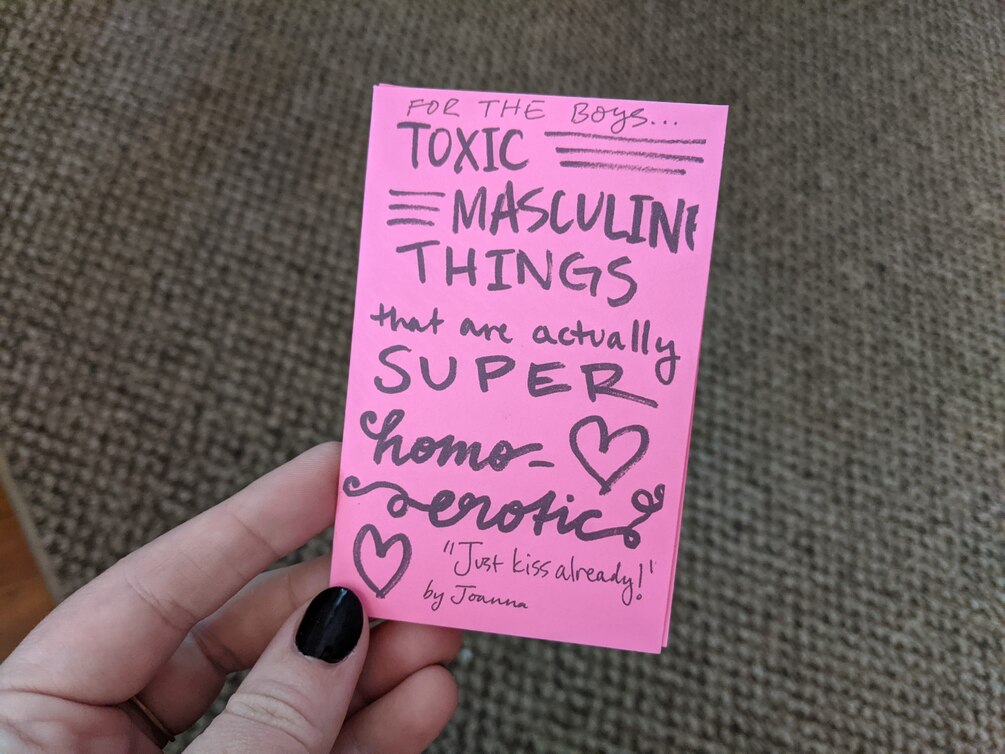 FOR THE BOYS...
TOXIC
MASCULINE
THINGS
that are actually
SUPER
homo-
erotic
"Just kiss already!"
by Joanna